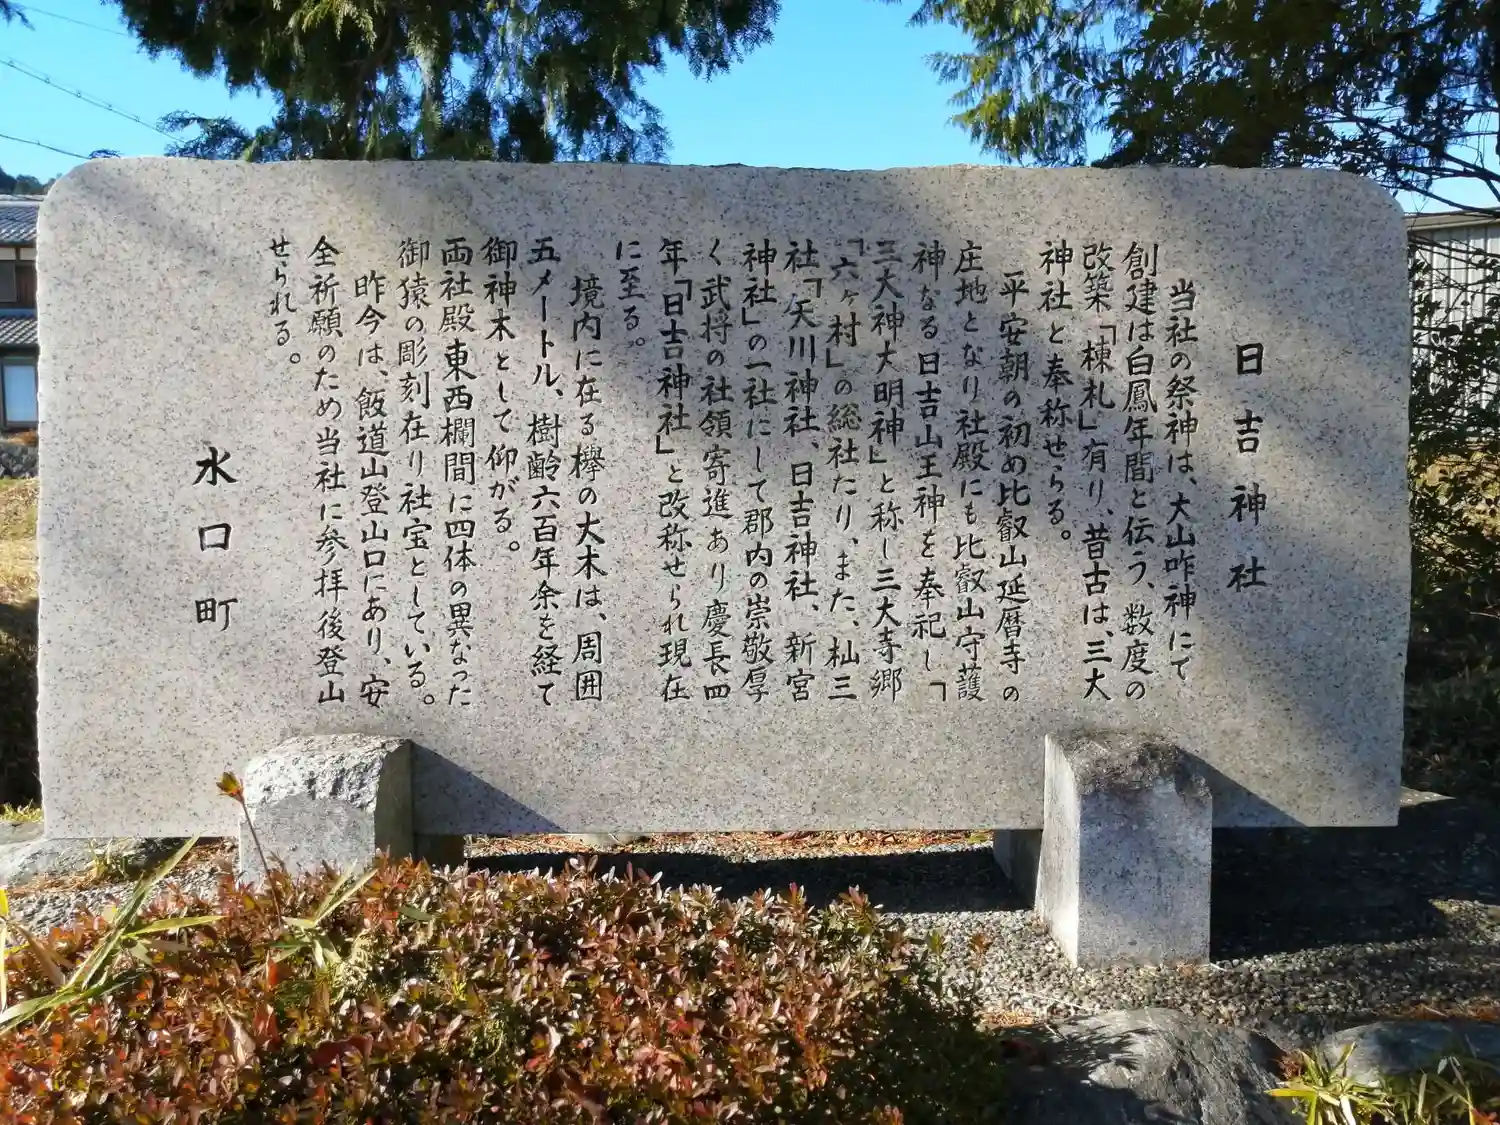 日吉神社
当社の祭神は、大山咋神にて
創建は白鳳年間と伝う、数度の
改築「棟札」有り、昔古は、三大
神社と奉称せらる。
平安朝の初め比叡山延暦寺の
庄地となり社殿にも比叡山守護
神なる日吉山王神を奉祀し「
三大神大明神」と称し三大寺郷
「六ヶ村」の総社たり、また、杣三
社「矢川神社、日吉神社、新宮
神社」の一社にして郡内の崇敬厚
く武将の社領寄進あり慶長四
年「日吉神社」と改称せられ現在
に至る。
境内に在る欅の大木は、周囲
五メートル、樹齢六百年余を経て
御神木として仰がる。
両社殿東西欄間に四体の異なった
御猿の彫刻在り社宝としている。
昨今は、飯道山登山口にあり、安
全祈願のため当社に参拝後登山
せられる。
水口町